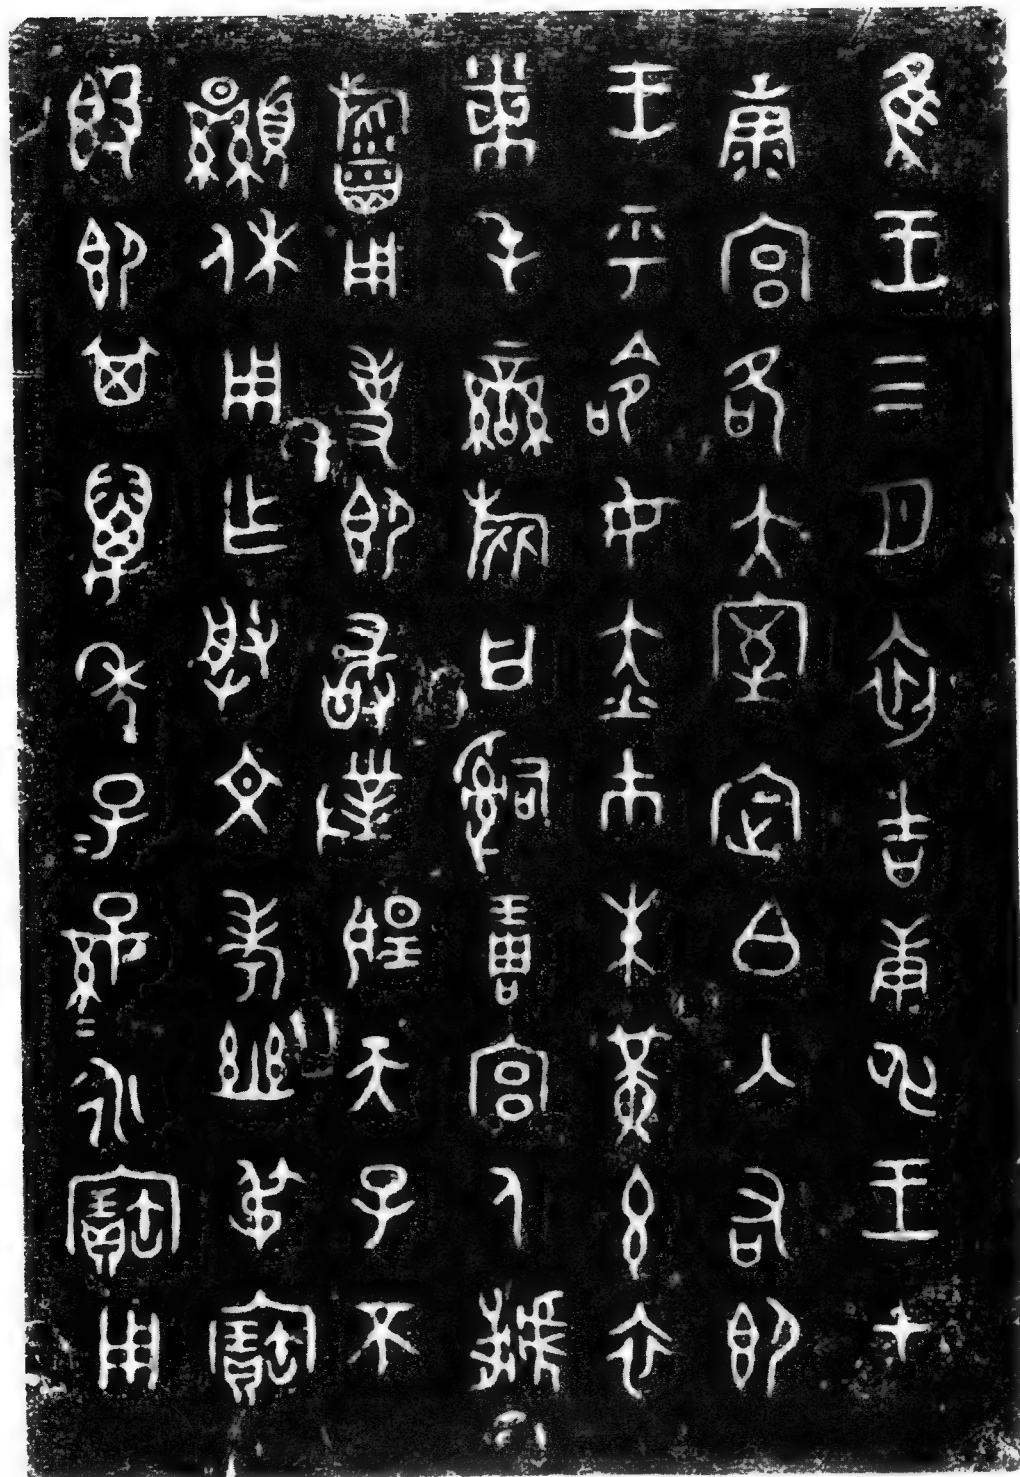 隹王三月初吉庚申王才
康宮各大室定白入右即
王乎命女赤巿朱黃玄衣
黹屯䜌旂曰𤔲琱宮人虤
旝用事即敢對揚天子不
顯休用乍朕文考幽弔寶
𣪘即其萬年子＝孫＝永寶用